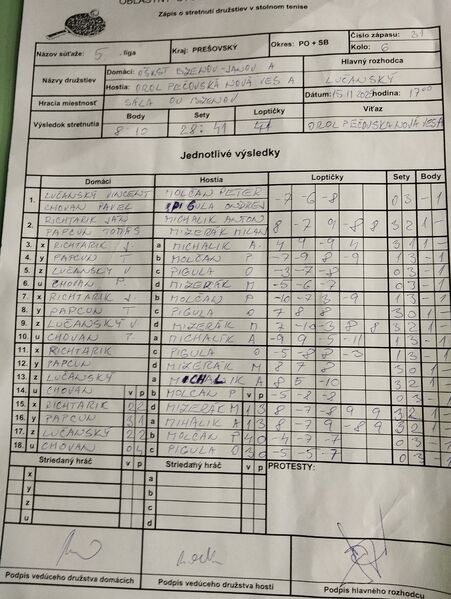 Zápis o stretnutí družstiev v stolnom tenise
Názov súťaže: 5. liga Kraj: PREŠOVSKÝ Okres: PO + SB Číslo zápasu: 31
Kolo: 6
Názvy družstiev Domáci: OŠKST BZENOV-JANOV A Hlavný rozhodca
Hostia: OROL PEČOVSKÁ NOVÁ VES A LUČANSKÝ
Hracia miestnosť SÁLA OÚ BZENOV Dátum: 15.11.2025 hodina: 17:00
Výsledok stretnutia Body Sety Loptičky Víťaz
8:10 28:41 OROL PEČOVSKÁ NOVÁ VES A
Jednotlivé výsledky
Domáci Hostia Loptičky Sety Body
1. LUČANSKÝ VINCENT MOLČAN PETER -7 -6 -8 0 3 - 1
CHOVAN PAVEL PIGULA ONDREJ
2. RICHTARIK JÁN MICHALIK ANTON 8 -7 9 -8 8 3 2 1 -
PAPCUN TOMÁŠ MIZERÁK MILAN
3. x RICHTARIK J. a MICHALIK A. 4 9 -9 4 3 1 1 -
4. y PAPCUN T b MOLČAN P -7 -9 8 -9 1 3 - 1
5. z LUČANSKÝ V c PIGULA O -3 -7 -8 0 3 - 1
6. u CHOVAN P. d MIZERÁK M -5 -6 -7 0 3 - 1
7. x RICHTARIK J. b MOLČAN P -10 -7 3 -9 1 3 - 1
8. y PAPCUN T c PIGULA O 7 8 8 3 0 1 -
9. z LUČANSKÝ V d MIZERÁK M 7 -10 -3 8 8 3 2 1 -
10. u CHOVAN P a MICHALIK A -9 9 -5 -11 1 3 - 1
11. x RICHTARIK c PIGULA O -5 -8 8 -3 1 3 - 1
12. y PAPCUN d MIZERÁK M 8 7 8 3 0 1 -
13. z LUČANSKÝ a MICHALIK A 8 5 -10 3 2 1 -
14. u CHOVAN v p b MOLČAN P v p -5 -8 -8 0 3 - 1
15. x RICHTARIK 2 2 d MIZERÁK M 1 3 8 -7 -8 9 9 3 2 1 -
16. y PAPCUN 3 1 a MIHALIK A 1 3 8 -7 9 -8 9 3 2 1 -
17. z LUČANSKÝ 2 2 b MOLČAN P 4 0 -4 -7 -7 0 3 - 1
18. u CHOVAN 0 4 c PIGULA O -5 -5 -7 0 3 - 1
Striedaný hráč v p Striedaný hráč v p PROTESTY:
x a
y b
z c
u d
Podpis vedúceho družstva domácich Podpis vedúceho družstva hostí Podpis hlavného rozhodcu